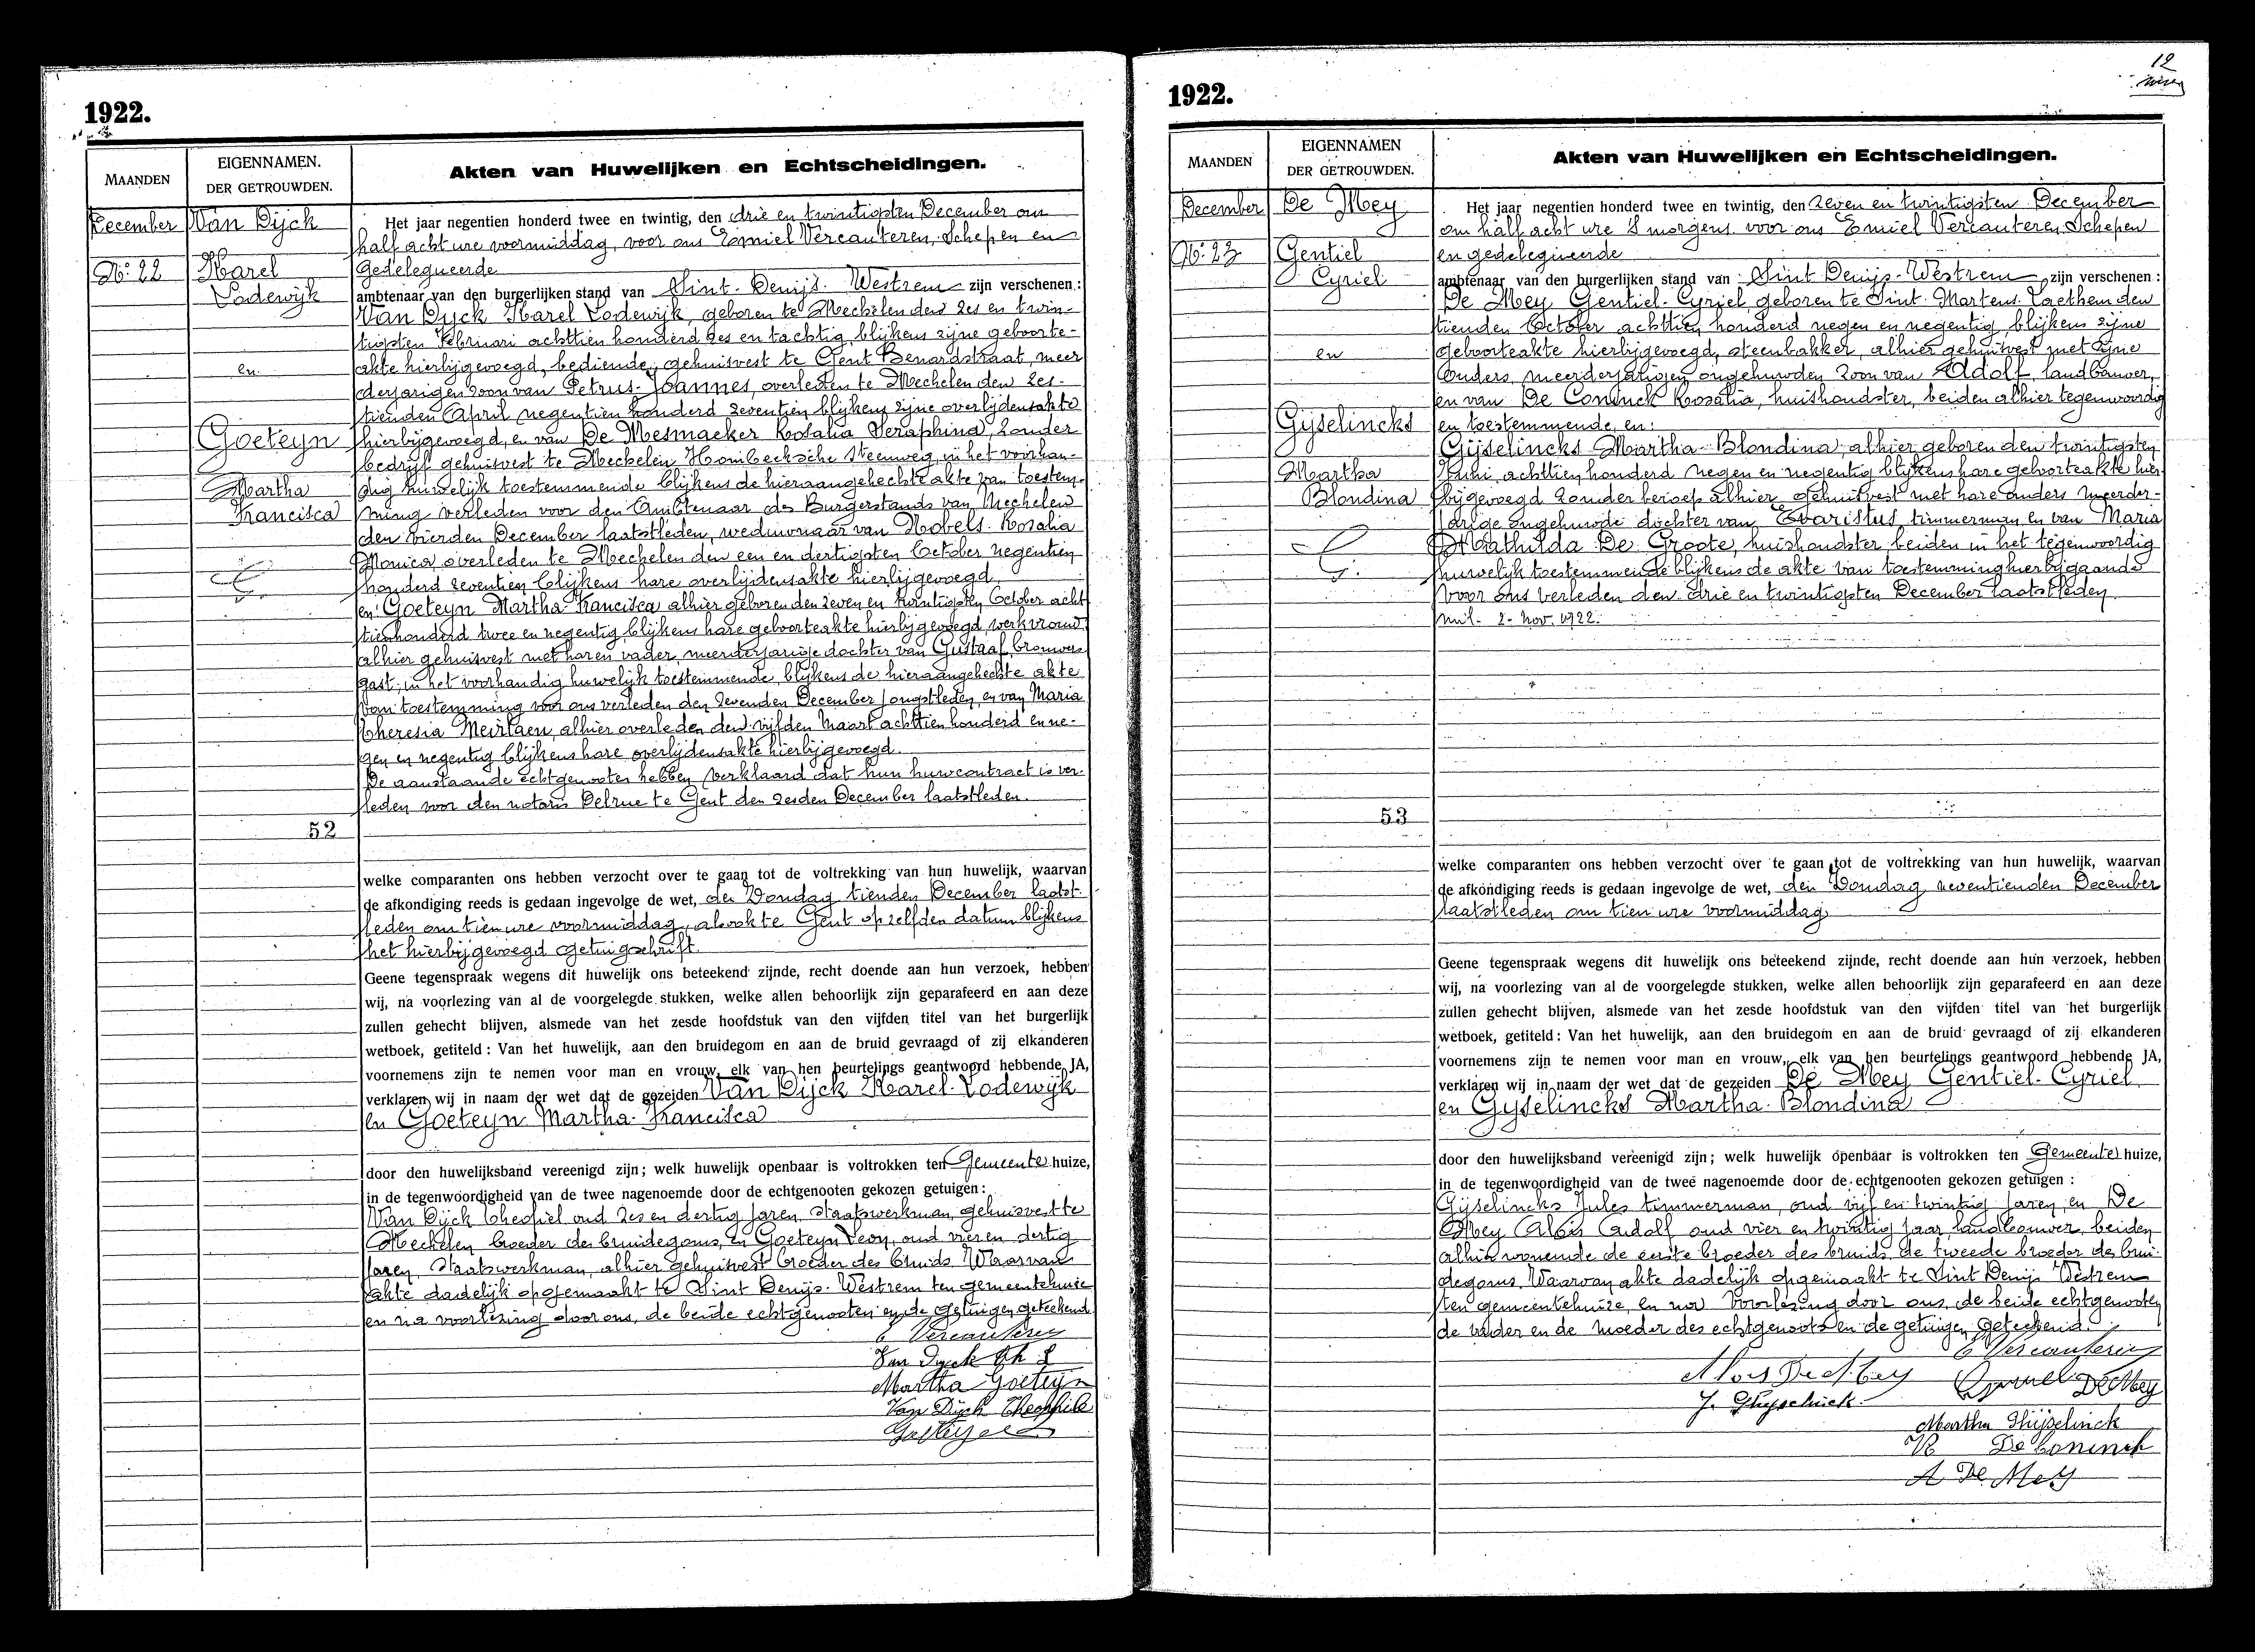 1922.
MAANDEN
EIGENNAMEN.
DER GETROUWDEN.
Akten van Huwelijken en Echtscheidingen.
December
No. 22
Van Dijck
Karel
Lodewijk
en
Goeteyn
Martha
Francisca
52
Het jaar negentien honderd twee en twintig, den drie en twintigsten December om
half acht ure voormiddag, voor ons Emiel Vercauteren, Schepen en
gedelegueerde
ambtenaar van den burgerlijken stand van Sint-Denijs-Westrem zijn verschenen:
Van Dyck Karel Lodewijk, geboren te Mechelen den zes en twin-
tigsten Februari achttien honderd zes en tachtig, blijkens zijne geboorte-
akte hierbijgevoegd, bediende, gehuisvest te Gent Benardstraat, meer
derjarigen zoon van Petrus-Joannes, overleden te Mechelen den zes-
tienden April negentien honderd zeventien blijkens zijne overlijdensakte
hierbijgevoegd, en van De Mesmaeker Rosalia Seraphina, zonder
bedrijf gehuisvest te Mechelen Hombeeksche steenweg in het voorhan-
dig huwelijk toestemmende blijkens de hieraangehechte akte van toestem-
ming verleden voor den Ambtenaar des Burgerstands van Mechelen
den vierden December laatstleden, weduwnaar van Nobels-Rosalia
Monica overleden te Mechelen den een en dertigsten October negentien
honderd zeventien blijkens hare overlijdensakte hierbijgevoegd
en Goeteyn Martha-Francisca alhier geboren den zeven en twintigsten October acht
tienhonderd twee en negentig, blijkens hare geboorteakte hierbijgevoegd, werkvrouw,
alhier gehuisvest met haren vader, meerderjarige dochter van Gustaaf, brouwers
gast, in het voorhandig huwelijk toestemmende, blijkens de hieraangehechte akte
van toestemming voor ons verleden den zevenden December jongstleden, en van Maria
Theresia Meirlaen, alhier overleden den vijfden Maart achttien honderd en ne-
gen en negentig blijkens hare overlijdensakte hierbijgevoegd.
De aanstaande echtgenooten hebben verklaard dat hun huwcontract is ver-
leden voor den notaris Delrue te Gent den zesden December laatstleden.
welke comparanten ons hebben verzocht over te gaan tot de voltrekking van hun huwelijk, waarvan
de afkondiging reeds is gedaan ingevolge de wet, den Zondag tienden December laatst-
leden om tien ure voormiddag, alsook te Gent op zelfden datum blijkens
het hierbijgevoegd getuigschrift.
Geene tegenspraak wegens dit huwelijk ons beteekend zijnde, recht doende aan hun verzoek, hebben
wij, na voorlezing van al de voorgelegde stukken, welke allen behoorlijk zijn geparafeerd en aan deze
zullen gehecht blijven, alsmede van het zesde hoofdstuk van den vijfden titel van het burgerlijk
wetboek, getiteld: Van het huwelijk, aan den bruidegom en aan de bruid gevraagd of zij elkanderen
voornemens zijn te nemen voor man en vrouw, elk van hen beurtelings geantwoord hebbende JA,
verklaren wij in naam der wet dat de gezeiden Van Dijck Karel-Lodewijk
en Goeteyn Martha-Francisca
door den huwelijksband vereenigd zijn; welk huwelijk openbaar is voltrokken ten Gemeente huize,
in de tegenwoordigheid van de twee nagenoemde door de echtgenooten gekozen getuigen:
Van Dijck Theofiel oud zes en dertig jaren, Staatswerkman, gehuisvest te
Mechelen broeder des bruidegoms, en Goeteyn Leon, oud vier en dertig
jaren, Staatswerkman, alhier gehuisvest broeder des bruids. Waarvan
akte dadelijk opgemaakt te Sint Denijs-Westrem ten gemeentehuize
en na voorlezing door ons, de beide echtgenooten en de getuigen geteekend.
E Vercauteren
Van Dyck
Martha Goeteyn
Van Dijck Theophile
Goeteyn
12
1922.
MAANDEN
EIGENNAMEN
DER GETROUWDEN.
Akten van Huwelijken en Echtscheidingen.
December
No. 23
De Mey
Gentiel
Cyriel
en
Gijselincks
Martha
Blondina
53
Het jaar negentien honderd twee en twintig, den zeven en twintigsten December
om half acht ure 's morgens voor ons Emiel Vercauteren, Schepen
en gedelegueerde
ambtenaar van den burgerlijken stand van Sint Denijs-Westrem zijn verschenen:
De Mey Gentiel-Cyriel, geboren te Sint-Martens-Laethem den
tienden October achttien honderd negen en negentig, blijkens zijne
geboorteakte hierbijgevoegd, steenbakker, alhier gehuisvest met zijne
ouders, meerderjarigen ongehuwden zoon van Adolf, landbouwer,
en van De Coninck Rosalia, huishoudster, beiden alhier tegenwoordig
en toestemmende, en:
Gijselincks Martha-Blondina, alhier geboren den twintigsten
Juni achttien honderd negen en negentig blijkens hare geboorteakte hier-
bijgevoegd zonder beroep alhier gehuisvest met hare ouders meerder-
jarige ongehuwde dochter van Evaristus, timmerman en van Maria
Mathilda De Groote, huishoudster beiden in het tegenwoordig
huwelijk toestemmende blijkens de akte van toestemming hierbijgaande
voor ons verleden den drie en twintigsten December laatstleden
mil. 2 - Nov. 1922.
welke comparanten ons hebben verzocht over te gaan tot de voltrekking van hun huwelijk, waarvan
de afkondiging reeds is gedaan ingevolge de wet, den Zondag zeventienden December
laatstleden om tien ure voormiddag
Geene tegenspraak wegens dit huwelijk ons beteekend zijnde, recht doende aan hun verzoek, hebben
wij, na voorlezing van al de voorgelegde stukken, welke allen behoorlijk zijn geparafeerd en aan deze
zullen gehecht blijven, alsmede van het zesde hoofdstuk van den vijfden titel van het burgerlijk
wetboek, getiteld: Van het huwelijk, aan den bruidegom en aan de bruid gevraagd of zij elkanderen
voornemens zijn te nemen voor man en vrouw, elk van hen beurtelings geantwoord hebbende JA,
verklaren wij in naam der wet dat de gezeiden De Mey Gentiel-Cyriel
en Gijselincks Martha-Blondina
door den huwelijksband vereenigd zijn; welk huwelijk openbaar is voltrokken ten Gemeente huize,
in de tegenwoordigheid van de twee nagenoemde door de echtgenooten gekozen getuigen:
Gijselincks Jules timmerman, oud vijf en twintig jaren, en De
Mey Alois Adolf oud vier en twintig jaar, landbouwer, beiden
alhier wonende de eerste broeder des bruids, de tweede broeder des brui-
degoms. Waarvan akte dadelijk opgemaakt te Sint Denijs Westrem
ten gemeentehuize, en na voorlezing door ons, de beide echtgenooten
de vader en de moeder des echtgenoots en de getuigen geteekend.
E Vercauteren
Alois De Mey
De Mey
J. Ghyselinck
Martha Ghijselinck
R De Coninck
A De Mey